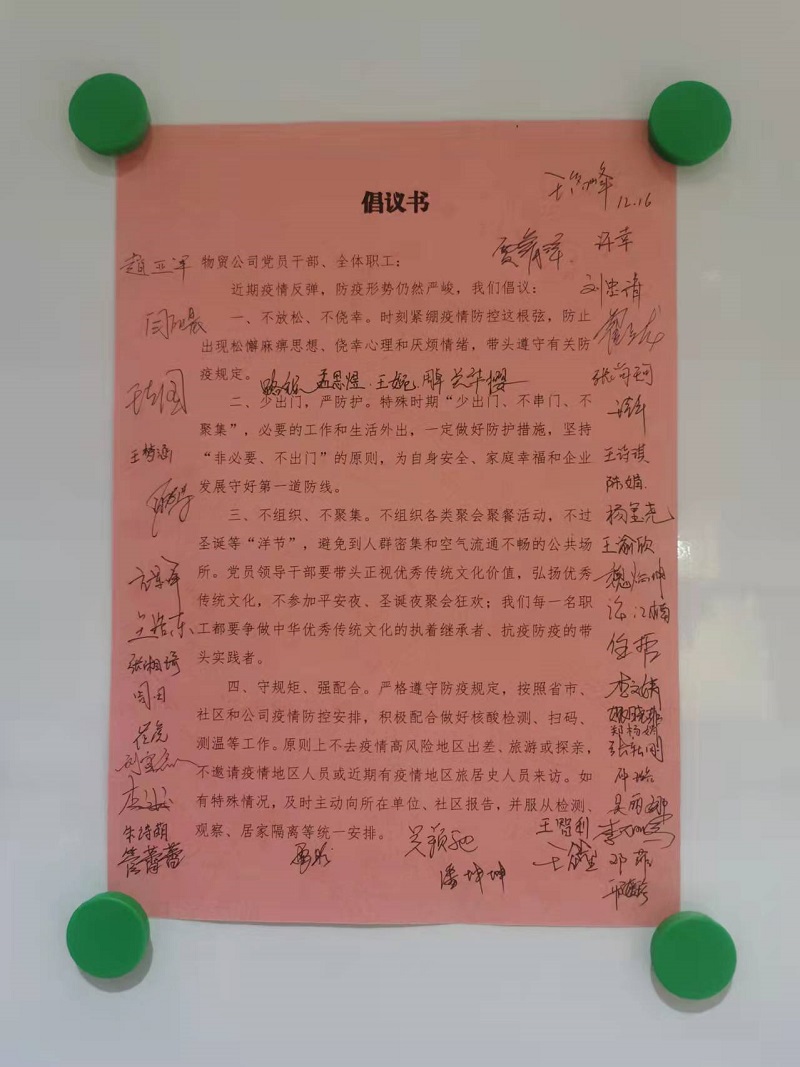 倡议书
12.16
许幸
赵亚军
物贸公司党员干部、全体职工：
近期疫情反弹，防疫形势仍然严峻，我们倡议：
刘忠靖
一、不放松、不侥幸。时刻紧绷疫情防控这根弦，防止
出现松懈麻痹思想、侥幸心理和厌烦情绪，带头遵守有关防
疫规定。
孟思煜
二、少出门，严防护。特殊时期“少出门、不串门、不
聚集”，必要的工作和生活外出，一定做好防护措施，坚持
王梦涵
“非必要、不出门”的原则，为自身安全、家庭幸福和企业
王诗琪
发展守好第一道防线。
陈娟
三、不组织、不聚集。不组织各类聚会聚餐活动，不过
圣诞等“洋节”，避免到人群密集和空气流通不畅的公共场
王渝欣
所。党员领导干部要带头正视优秀传统文化价值，弘扬优秀
传统文化，不参加平安夜、圣诞夜聚会狂欢；我们每一名职
工都要争做中华优秀传统文化的执着继承者、抗疫防疫的带
头实践者。
张湘琦
四、守规矩、强配合。严格遵守防疫规定，按照省市、
李文婧
社区和公司疫情防控安排，积极配合做好核酸检测、扫码、
测温等工作。原则上不去疫情高风险地区出差、旅游或探亲，
不邀请疫情地区人员或近期有疫情地区旅居史人员来访。如
有特殊情况，及时主动向所在单位、社区报告，并服从检测、
吴丽娜
观察、居家隔离等统一安排。
王智利
朱诗萌
管蕾蕾
邓菲
潘坤坤